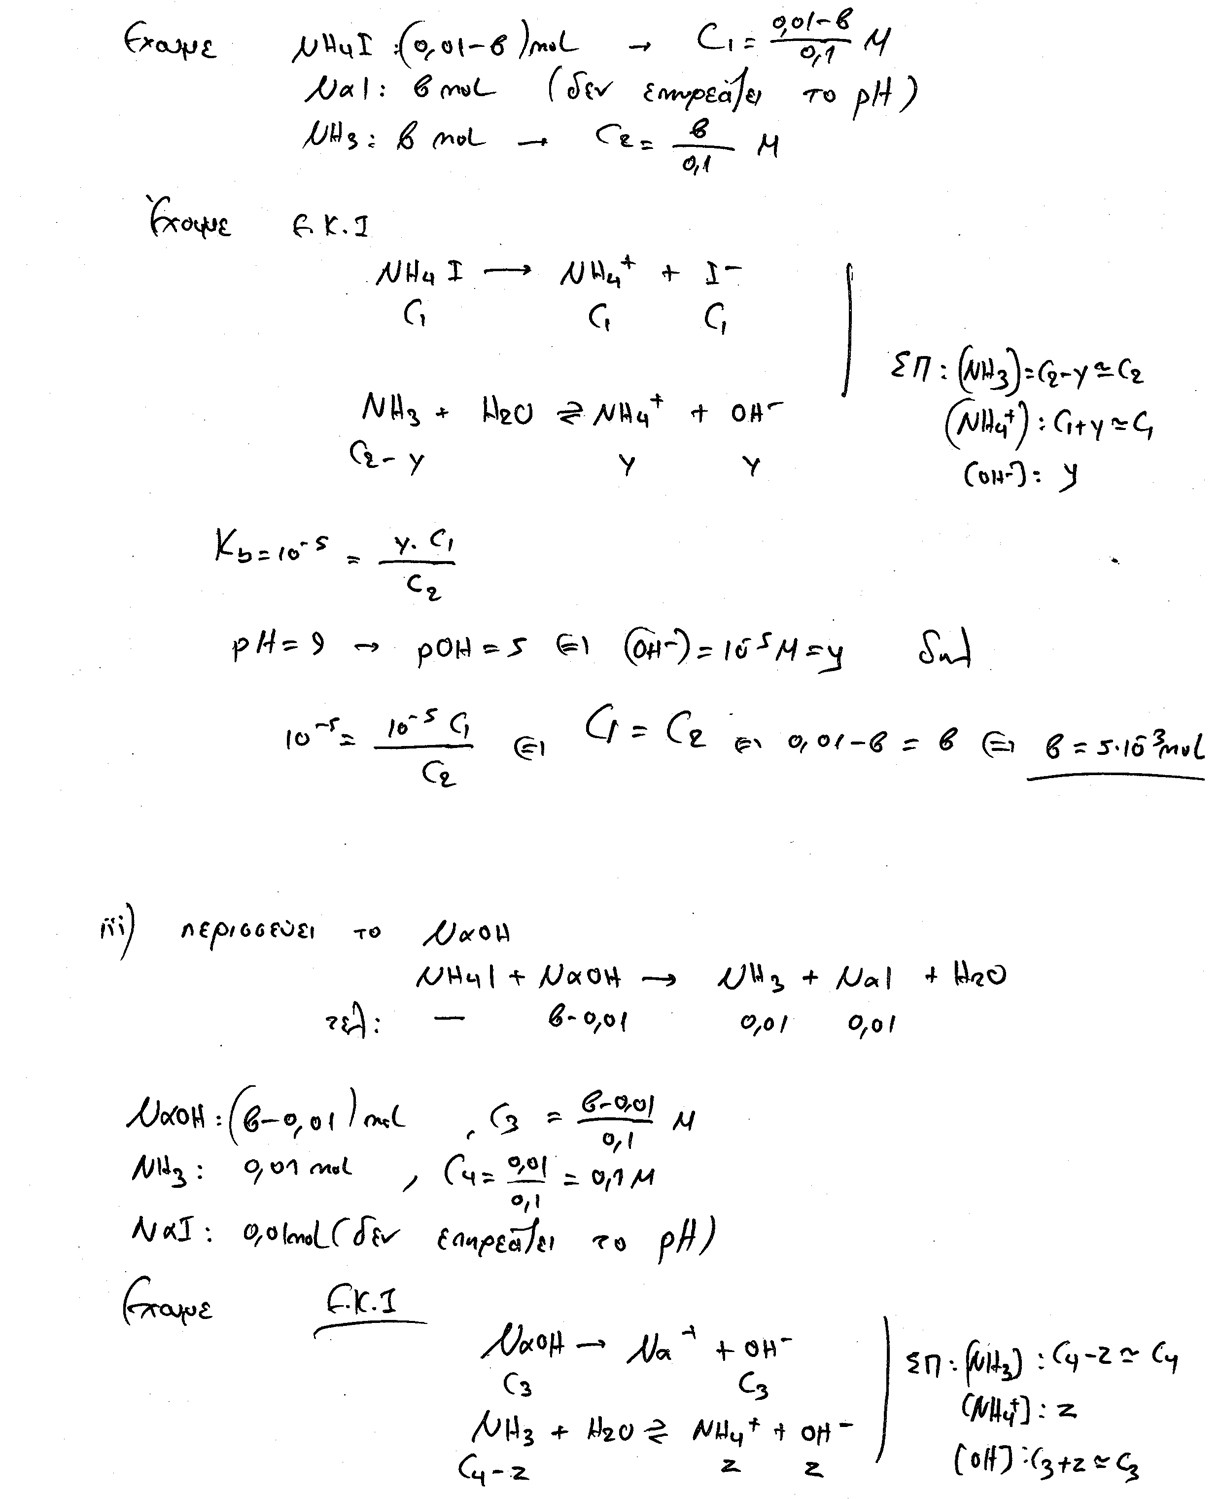 Έχουμε NH4I : (0,01-β) mol → C1 = (0,01-β)/0,1 M
NaI : β mol (δεν επηρεάζει το pH)
NH3 : β mol → C2 = β/0,1 M
Έχουμε Ε.Κ.Ι
NH4I → NH4+ + I-
C1 C1 C1
NH3 + H2O ⇌ NH4+ + OH-
C2-y y y
ΣΠ : (NH3) = C2-y ≃ C2
(NH4+) : C1+y ≃ C1
[OH-] : y
Kb = 10^-5 = y·C1/C2
pH = 9 → pOH = 5 ⇔ (OH-) = 10^-5 M = y δηλ
10^-5 = 10^-5 C1/C2 ⇔ C1 = C2 ⇔ 0,01-β = β ⇔ β = 5·10^-3 mol
iii) περισσεύει το NaOH
NH4I + NaOH → NH3 + NaI + H2O
τελ: — β-0,01 0,01 0,01
NaOH : (β-0,01) mol , C3 = (β-0,01)/0,1 M
NH3 : 0,01 mol , C4 = 0,01/0,1 = 0,1 M
NaI : 0,01 mol (δεν επηρεάζει το pH)
Έχουμε Ε.Κ.Ι
NaOH → Na+ + OH-
C3 C3
NH3 + H2O ⇌ NH4+ + OH-
C4-z z z
ΣΠ : (NH3) : C4-z ≃ C4
[NH4+] : z
[OH] : C3+z ≃ C3